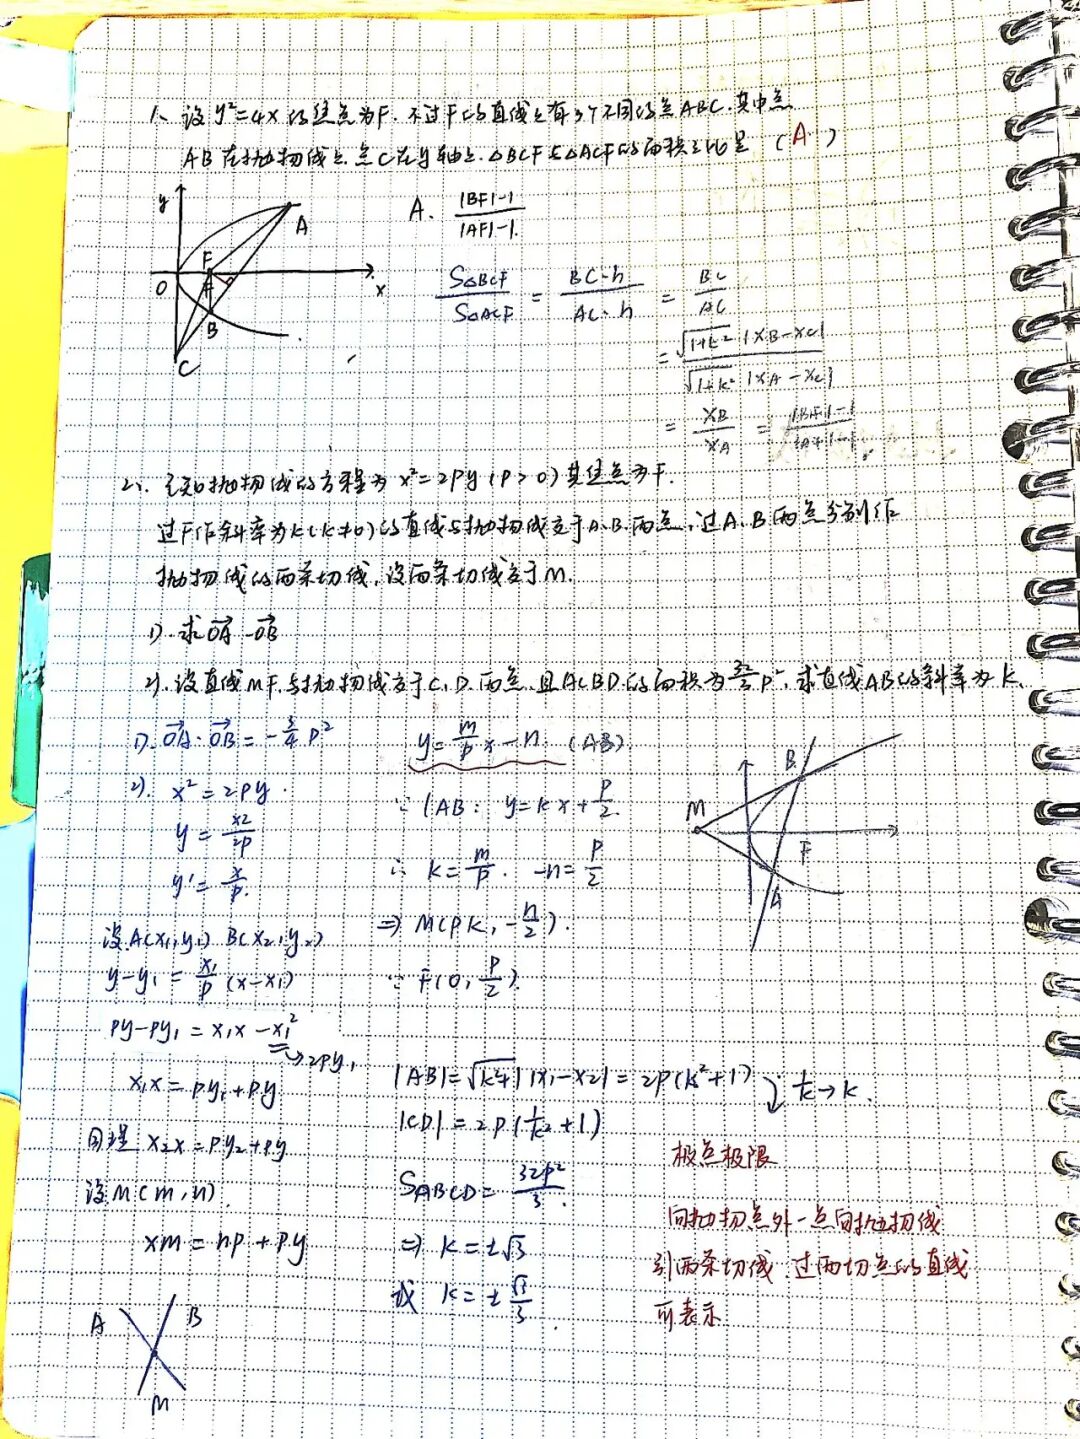 1、设 y²=4x 的焦点为F. 不过F的直线上有3个不同的点ABC. 其中点
AB在抛物线上. 点C在y轴上. △BCF与△ACF的面积之比是 (A.)
y
A
F
O
x
B
C
A. |BF|-1 / |AF|-1.
S△BCF / S△ACF = BC·h / AC·h = BC / AC
= √1+k² |xB-xC| / √1+k² |xA-xC|
= xB / xA = |BF|-1 / |AF|-1
2、已知抛物线的方程为 x²=2py (p>0) 其焦点为F.
过F作斜率为k(k≠0)的直线与抛物线交于A.B.两点, 过A.B两点分别作
抛物线的两条切线, 设两条切线交于M.
1). 求OA·OB
2). 设直线MF.与抛物线交于C.D.两点. 且ACBD的面积为 p², 求直线AB的斜率为k.
1). OA·OB = -3/4 p²
2). x² = 2py.
y = x²/2p
y' = x/p.
设A(x₁,y₁) B(x₂,y₂)
y-y₁ = x₁/p (x-x₁)
py-py₁ = x₁x-x₁²
→2py₁
x₁x = py₁+py
同理 x₂x = py₂+py
设M(m,n)
xm = np+py
A
B
M
y = m/p x-n (AB)
∵ lAB: y=kx+p/2.
∴ k=m/p. -n=p/2
⇒ M(pk, -n/2).
∵ F(0, p/2)
|AB|=√k²+1 |x₁-x₂| = 2p(k²+1)
1/k→k.
|CD| = 2p(1/k²+1)
SABCD = 32p²/3.
⇒ k=±√3
或 k=±√3/3.
B
M
F
A
极点极限
向抛物点外一点向抛物线
引两条切线. 过两切点的直线
可表示